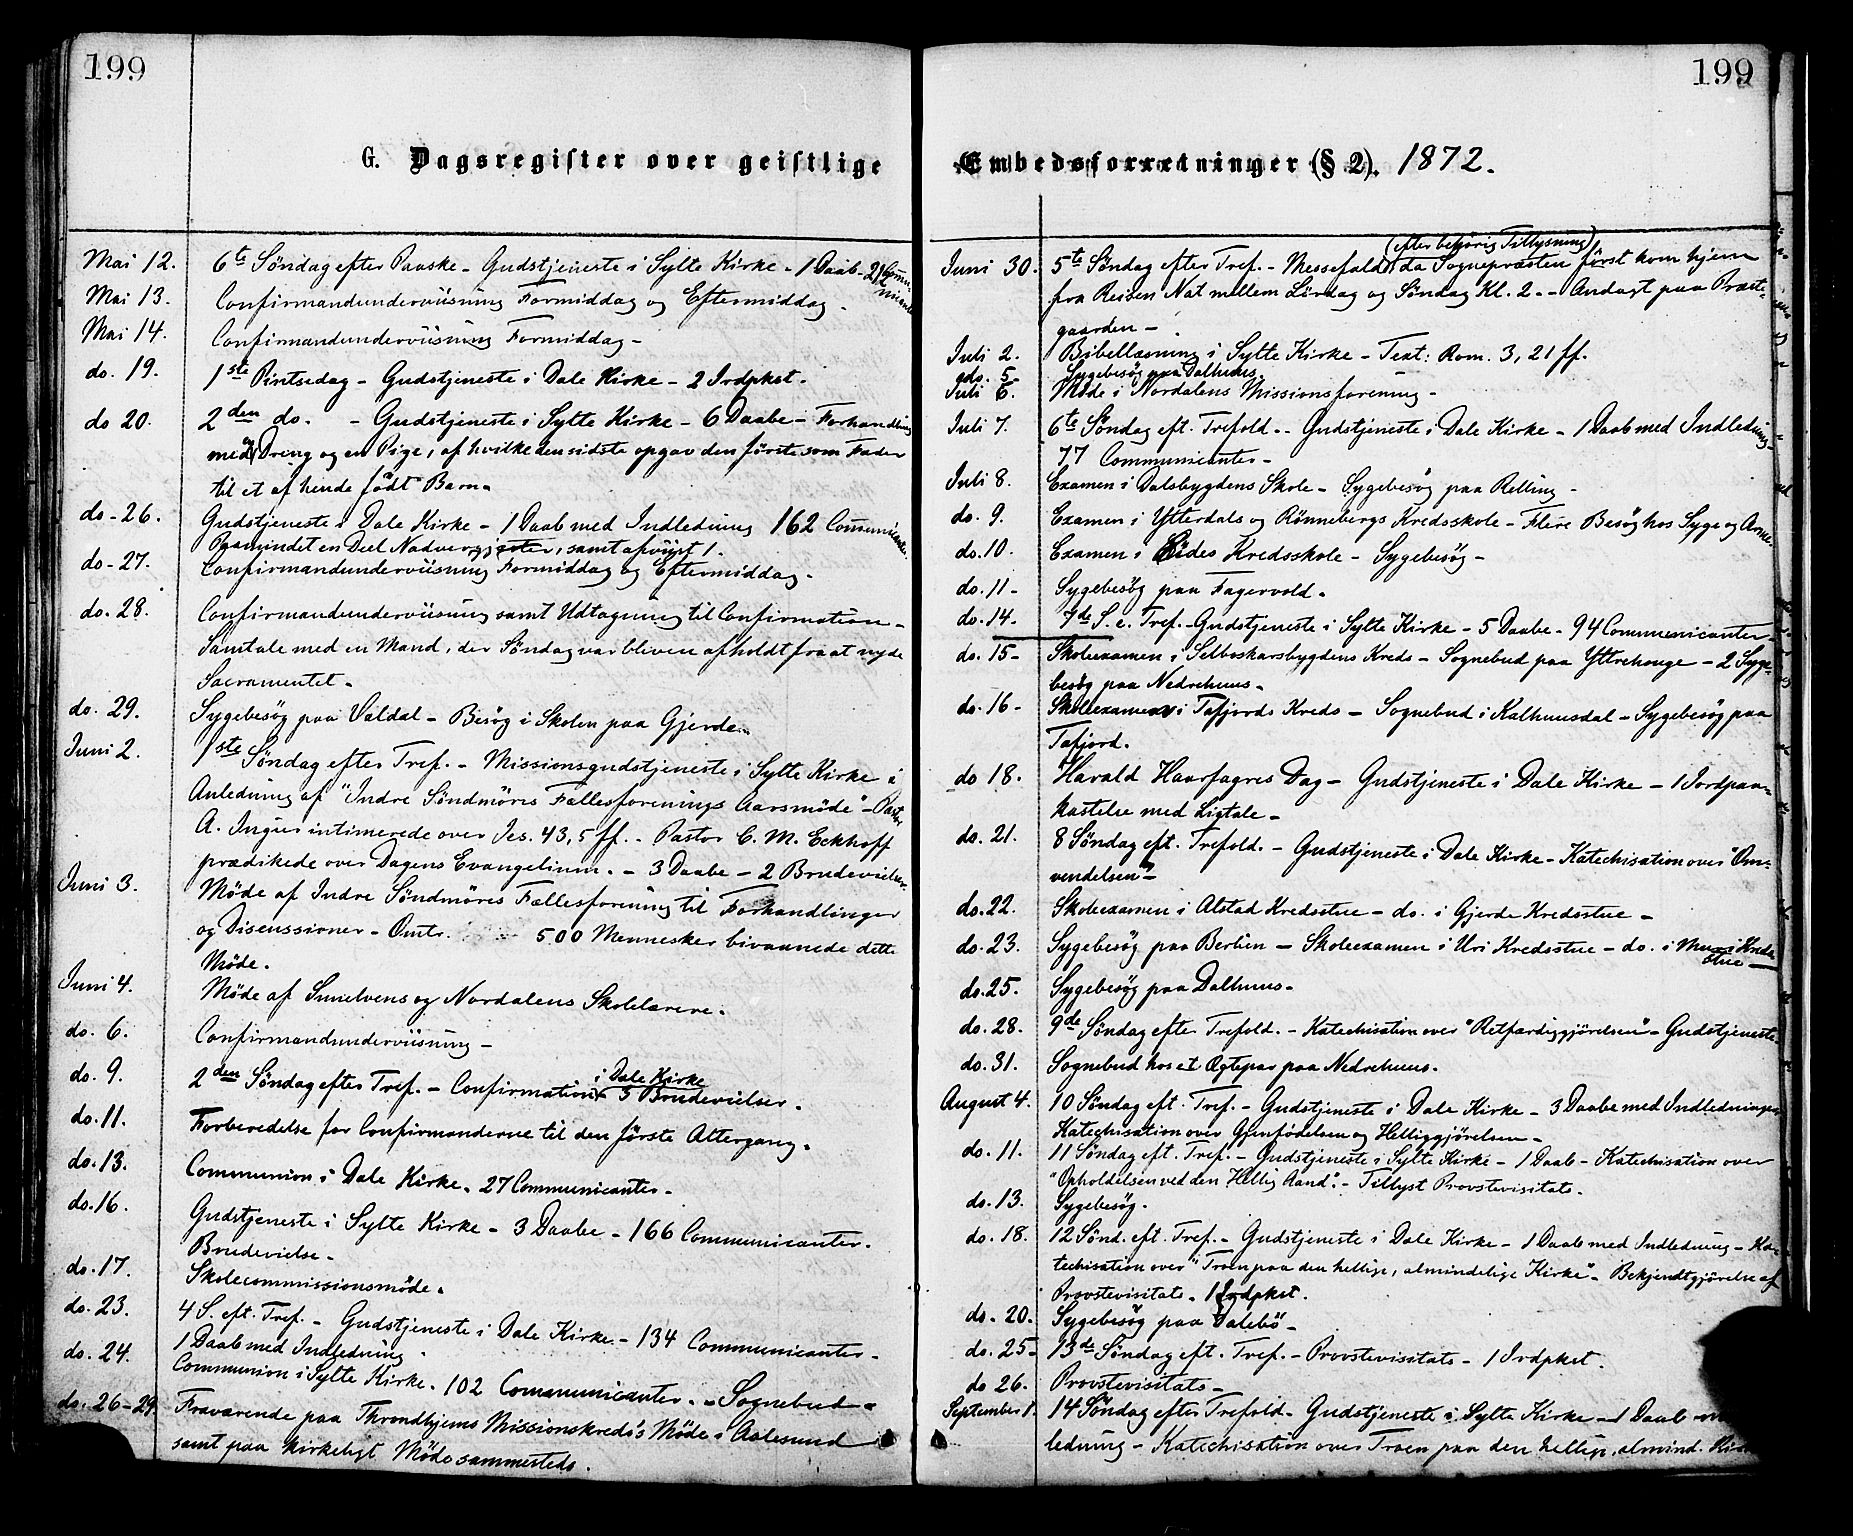 199
G. Dagsregister over geistlige
Mai 12. 6te Søndag efter Paaske - Gudstjeneste i Sylte Kirke - 1 Daab - 21 Communicanter
Mai 13. Confirmandunderviisning Formiddag og Eftermiddag -
Mai 14. Confirmandunderviisning Formiddag -
do. 19. 1ste Pintsedag - Gudstjeneste i Dale Kirke - 2 Irdpkst.
do 20. 2den do. - Gudstjeneste i Sylte Kirke - 6 Daabe - Forhandling
med Dreng og en Pige, af hvilke den sidste opgav den første som Fader
til et af hende født Barn.
do - 26. Gudstjeneste i Dale Kirke - 1 Daab med Indledning 162 Communicanter.
Paamindet en Deel Nadvergjæster, samt afviist 1.
do - 27. Confirmandunderviisning Formiddag og Eftermiddag.
do. 28. Confirmandunderviisning samt Udtagning til Confirmation -
Samtale med en Mand, der Søndag var bleven afholdt fra at nyde
Sacramentet -
do. 29. Sygebesøg paa Valdal - Besøg i Skolen paa Gjerde.
Juni 2. 1ste Søndag efter Tref. - Missionsgudstjeneste i Sylte Kirke i
Anledning af "Indre Søndmøres Fællesforenings Aarsmøde" - Pastor
A. Ingier intimerede over Jes. 43, 5 ff. - Pastor C. M. Eckhoff
prædikede over Dagens Evangelium. - 3 Daabe - 2 Brudevielser.
Juni 3. Møde af Indre Søndmøres Fællesforening til Forhandlinger
og Discussioner - Omtr. 500 Mennesker bivaanede dette
Møde.
Juni 4. Møde af Sunelvens og Nordalens Skolelærere.
do. 6. Confirmandunderviisning -
do. 9. 2den Søndag efter Tref. - Confirmation i Dale Kirke 5 Brudevielser.
do. 11. Forberedelse for Confirmanderne til den første Altergang.
do. 13. Communion i Dale Kirke. 27 Communicanter.
do. 16. Gudstjeneste i Sylte Kirke - 3 Daabe - 166 Communicanter.
Brudevielse -
do. 17. Skolecommissionsmøde.
do. 23. 4 S. eft. Tref. - Gudstjeneste i Dale Kirke - 134 Communicanter -
1 Daab med Indledning.
do. 24. Communion i Sylte Kirke. 102 Communicanter. - Sognebud -
do. 26 - 29. Fraværende paa Throndhjems Missionskreds's Møde i Aalesund
samt paa kirkeligt Møde sammesteds.
199
Embedsforretninger (§ 2). 1872.
Juni 30. 5te Søndag efter Tref. - Messefald (efter behørig Tillysning) da Sognepræsten først kom hjem
fra Reisen Nat mellem Lørdag og Søndag Kl. 2. - Andagt paa Præste-
gaarden -
Juli 2. Bibellæsning i Sylte Kirke - Text: Rom. 3, 21 ff.
do. 5 Sygebesøg paa Dalhuus.
Juli 6. Møde i Nordalens Missionsforening -
Juli 7. 6te Søndag eft. Trefold. - Gudstjeneste i Dale Kirke - 1 Daab med Indledning -
77 Communicanter -
Juli 8. Examen i Dalsbygdens Skole - Sygebesøg paa Relling -
do. 9. Examen i Ytterdals og Rønnebergs Kredsskole - Flere Besøg hos Syge og Arme.
do. 10. Examen i Eides Kredsskole - Sygebesøg -
do. 11 - Sygebesøg paa Fagervold.
do. 14 - 7de S. e. Tref. - Gudstjeneste i Sylte Kirke - 5 Daabe - 94 Communicanter -
do. 15 - Skoleexamen i Selboskarsbygdens Kreds - Sognebud paa Yttrehauge - 2 Syge-
besøg paa Nedrehuus.
do. 16 - Skoleexamen i Tafjords Kreds - Sognebud i Kalhuusdal - Sygebesøg paa
Tafjord.
do 18. Harald Haarfagres Dag - Gudstjeneste i Dale Kirke - 1 Jordpaa-
kastelse med Ligtale -
do. 21. 8 Søndag eft. Trefold. - Gudstjeneste i Dale Kirke - Katechisation over "Om-
vendelsen" -
do. 22. Skoleexamen i Alstad Kredsstue - do. i Gjerde Kredsstue -
do. 23. Sygebesøg paa Berlien - Skoleexamen i Uri Kredsstue - do. i Muri Kreds-
stue -
do. 25. Sygebesøg paa Dalhuus -
do. 28. 9de Søndag efter Trefold. - Katechisation over "Retfærdiggjørelsen" - Gudstjeneste.
do. 31. Sognebud hos et Ægtepar paa Nedrehuus.
August 4. 10 Søndag eft. Tref. - Gudstjeneste i Dale Kirke - 3 Daabe med Indledninger
Katechisation over Gjenfødelsen og Helliggjørelsen -
do. 11. 11 Søndag eft. Tref. - Gudstjeneste i Sylte Kirke - 1 Daab - Katechisation over
"Opholdelsen ved den Hellig Aand". - Tillyst Provstevisitats.
do. 13. Sygebesøg.
do. 18. 12 Sønd. eft. Tref. - Gudstjeneste i Dale Kirke - 1 Daab med Indledning - Ka-
techisation over "Troen paa den hellige, almindelige Kirke" - Bekjendtgjørelse af
Provstevisitats. 1 Irdpkst.
do. 20. Sygebesøg paa Dalebø -
do. 25 - 13de Søndag eft. Tref. - Provstevisitats - 1 Irdpkst.
do 26. Provstevisitats -
September 1. 14 Søndag efter Trefold - Gudstjeneste i Sylte Kirke - 1 Daab
ledning - Katechisation over Troen paa den hellige, almind.